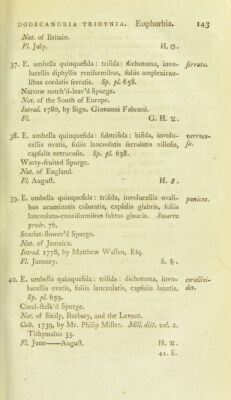 DODECANDRIA TRIGYNIA. Euphorbia. 143
Nat. of Britain.
Fl. July. H. ☉.
37. E. umbella quinquefida: trifida: dichotoma, invo- serrata.
lucellis diphyllis reniformibus, foliis amplexicau-
libus cordatis serratis. Sp. pl. 658.
Narrow notch'd-leav'd Spurge.
Nat. of the South of Europe.
Introd. 1780, by Sign. Giovanni Fabroni.
Fl. G. H. ♃.
38. E. umbella quinquefida: subtrifida: bifida, involu- verruco-
cellis ovatis, foliis lanceolatis serrulatis villosis, sa.
capsulis verrucosis. Sp. pl. 658.
Warty-fruited Spurge.
Nat. of England.
Fl. August. H. ♂.
39. E. umbella quinquefida: trifida, involucellis ovali- punicea.
bus acuminatis coloratis, capsulis glabris, foliis
lanceolato-cuneiformibus subtus glaucis. Swartz
prodr. 76.
Scarlet-flower'd Spurge.
Nat. of Jamaica.
Introd. 1778, by Matthew Wallen, Esq.
Fl. January. S. ♄.
40. E. umbella quinquefida: trifida: dichotoma, invo- corallioi-
lucellis ovatis, foliis lanceolatis, capsulis lanatis. des.
Sp. pl. 659.
Coral-stalk'd Spurge.
Nat. of Sicily, Barbary, and the Levant.
Cult. 1739, by Mr. Philip Miller. Mill. dict. vol. 2.
Tithymalus 35.
Fl. June——August. H. ♃.
41. E.